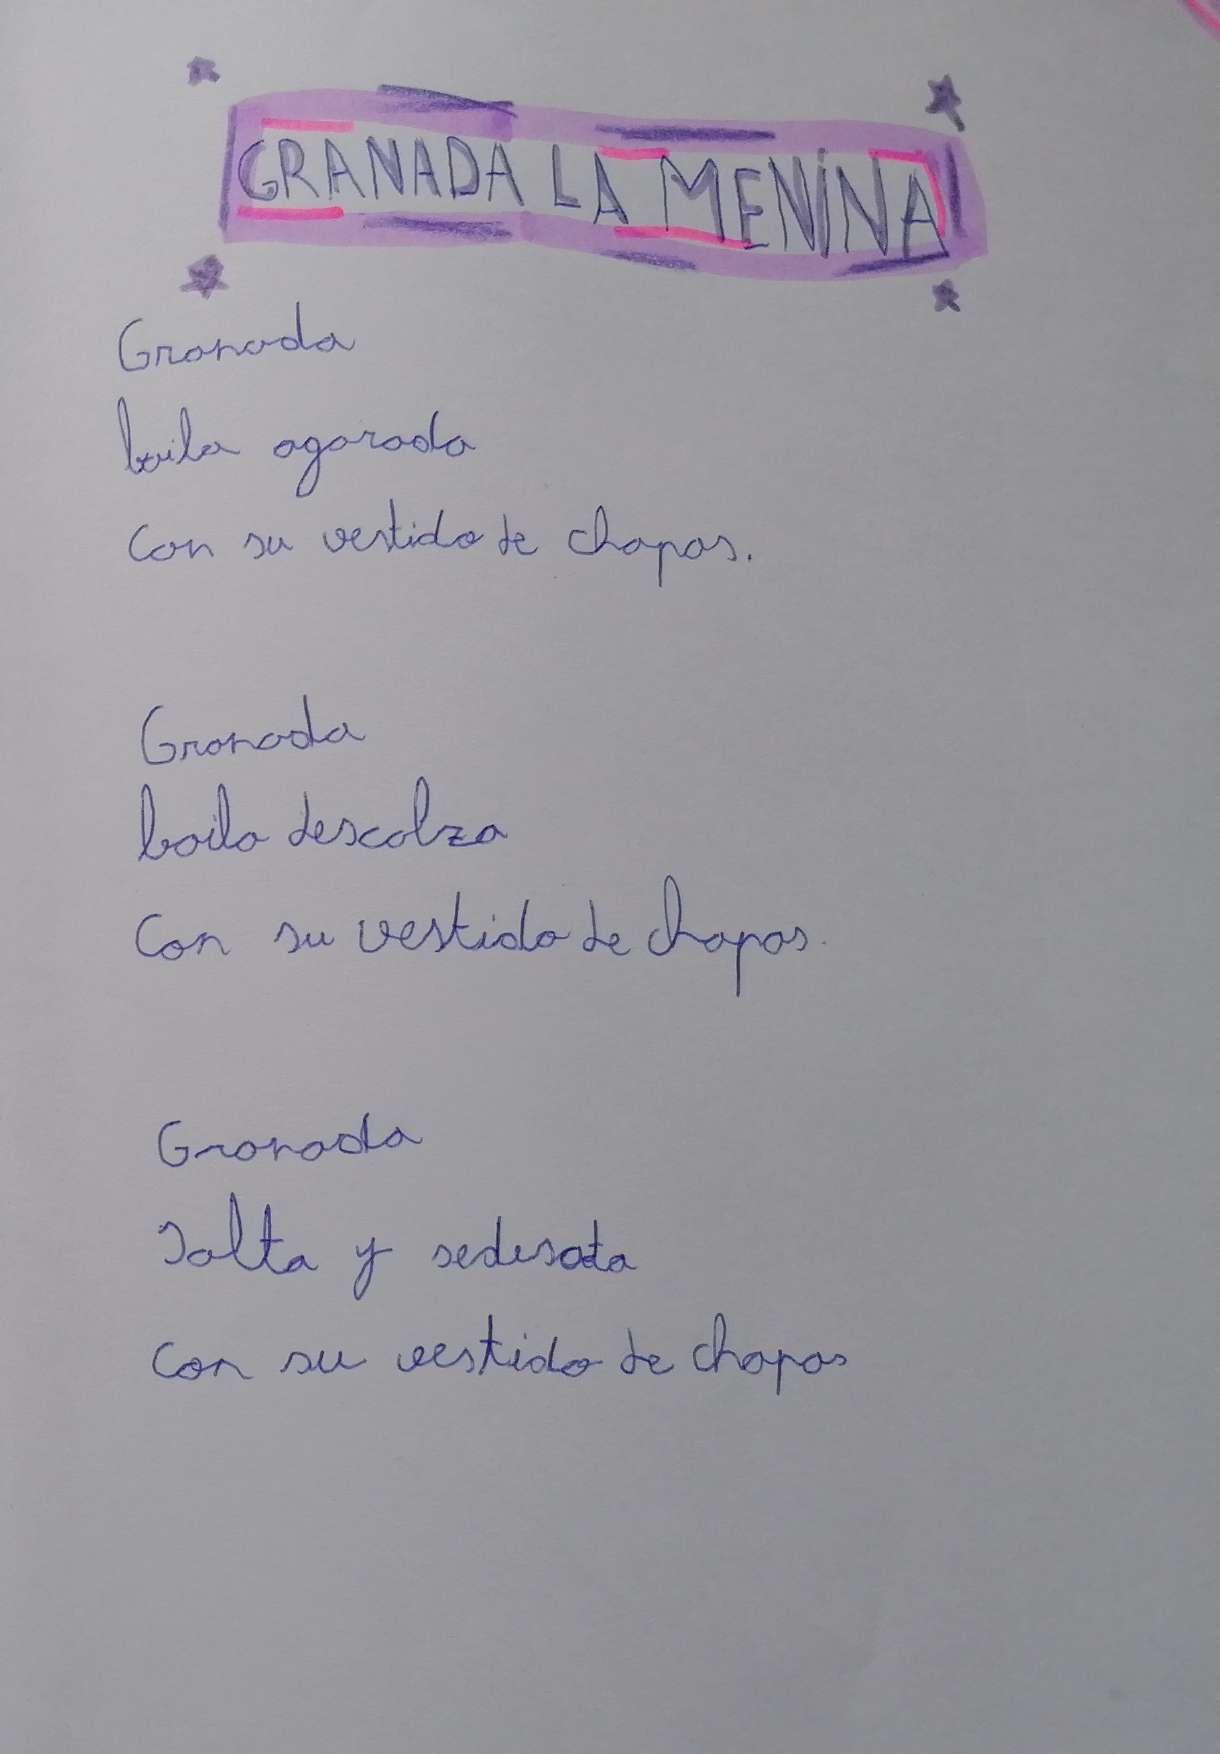 GRANADA LA MENINA
Granada
baila agarada
con su vestido de chapas.
Granada
baila descalza
con su vestido de chapas.
Granada
Salta y sedesata
con su vestido de chapas